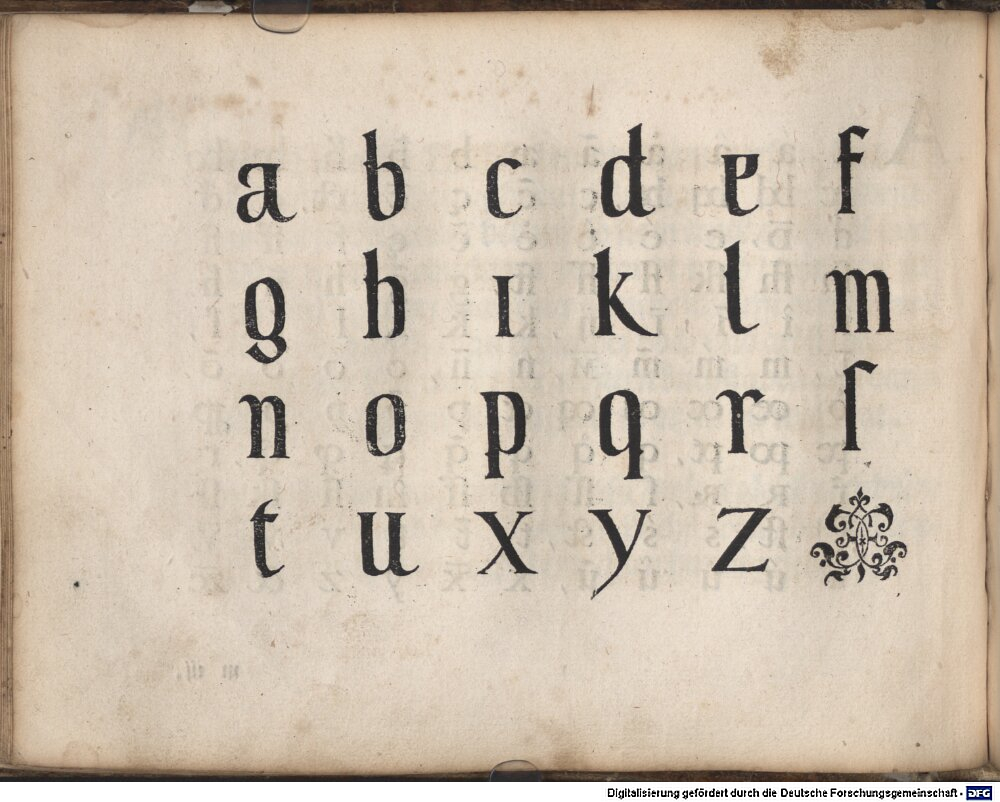 a b c d e f
g h ı k l m
n o p q r ſ
t u x y z
Digitalisierung gefördert durch die Deutsche Forschungsgemeinschaft - DFG